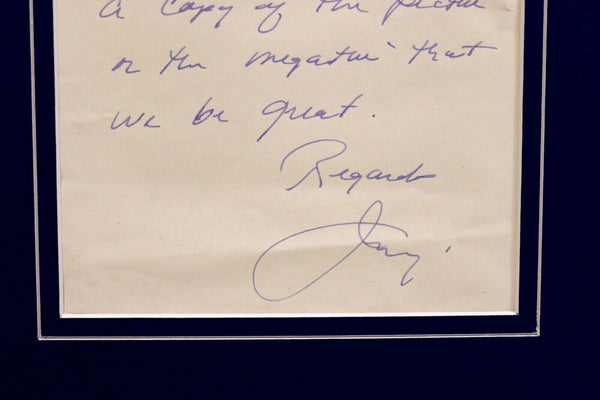 a copy of the picture
or the negative that
we be great.
Regards